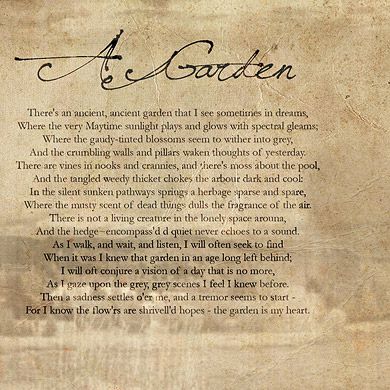 A Garden
There's an ancient, ancient garden that I see sometimes in dreams,
Where the very Maytime sunlight plays and glows with spectral gleams;
Where the gaudy-tinted blossoms seem to wither into grey,
And the crumbling walls and pillars waken thoughts of yesterday.
There are vines in nooks and crannies, and there's moss about the pool,
And the tangled weedy thicket chokes the arbour dark and cool:
In the silent sunken pathways springs a herbage sparse and spare,
Where the musty scent of dead things dulls the fragrance of the air.
There is not a living creature in the lonely space arouna,
And the hedge~encompass'd d quiet never echoes to a sound.
As I walk, and wait, and listen, I will often seek to find
When it was I knew that garden in an age long left behind;
I will oft conjure a vision of a day that is no more,
As I gaze upon the grey, grey scenes I feel I knew before.
Then a sadness settles o'er me, and a tremor seems to start -
For I know the flow'rs are shrivell'd hopes - the garden is my heart.